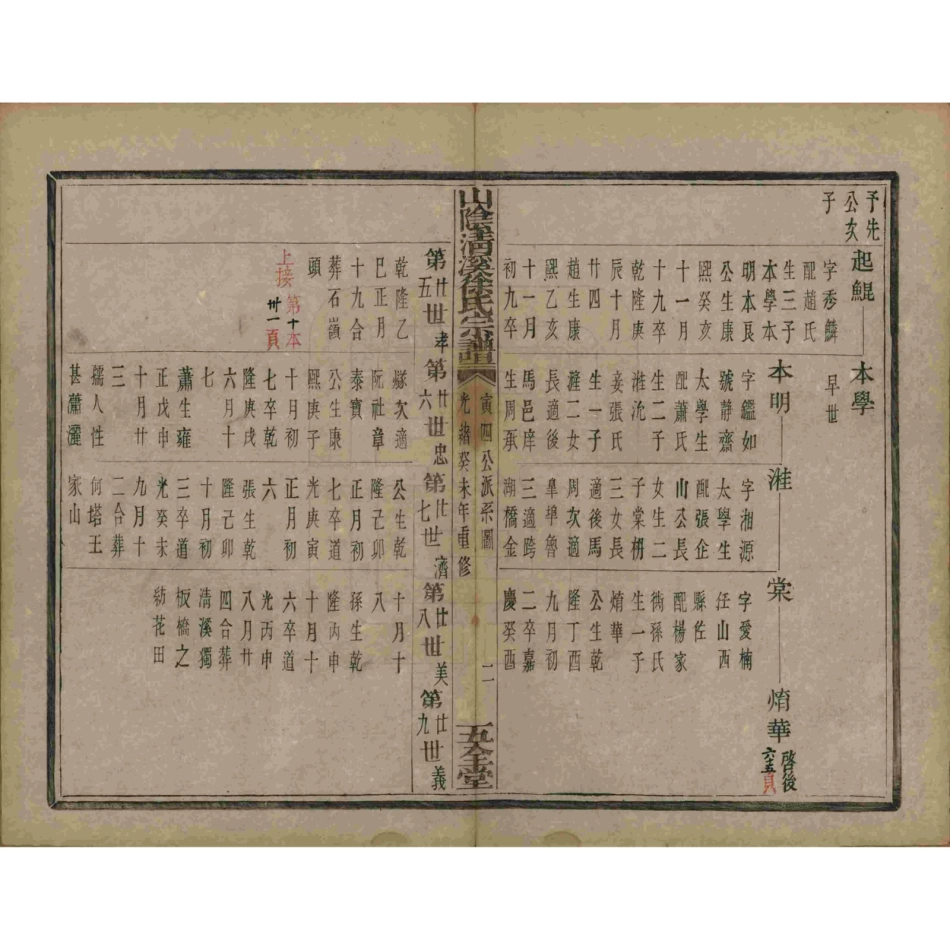 予先
公次
子
起鯤
字秀麟
配趙氏
生三子
本學本
明本長
公生康
熙癸亥
十一月
十九卒
乾隆庚
辰十月
廿四
趙生康
熙乙亥
十一月
初九卒
本學
早世
本明
字鑑如
號靜齋
太學生
配蕭氏
生二子
漼沇
妾張氏
生一子
漼二女
長適後
馬邑庠
生周承
漼
字湘源
太學生
配張企
山公長
女生二
子棠栩
三女長
適後馬
周次適
皐魯
三適跨
湖橋金
棠
字愛楠
任山西
縣佐
配楊家
衖孫氏
生一子
焴華
公生乾
隆丁酉
九月初
二卒嘉
慶癸酉
焴華
啓後
六十五頁
山陰清溪徐氏宗譜
寅四公派系圖
光緒癸未年重修
二
五全堂
第廿五世孝
第廿六世忠
第廿七世濟
第廿八世美
第廿九世義
乾隆乙
巳正月
十九合
葬石嶺
頭
上接第十本
卅一頁
縣次適
阮社章
泰寶
公生康
熙庚子
十月初
七卒乾
隆庚戌
六月十
七
蕭生雍
正戊申
十月廿
三
孺人性
甚蕭灑
公生乾
隆己卯
正月初
七卒道
光庚寅
正月初
六
張生乾
隆己卯
十月初
三卒道
光癸未
九月十
二合葬
何塔王
家山
十月十
八
孫生乾
隆丙申
十月十
六卒道
光丙申
八月廿
四合葬
清溪獨
板橋之
紡花田